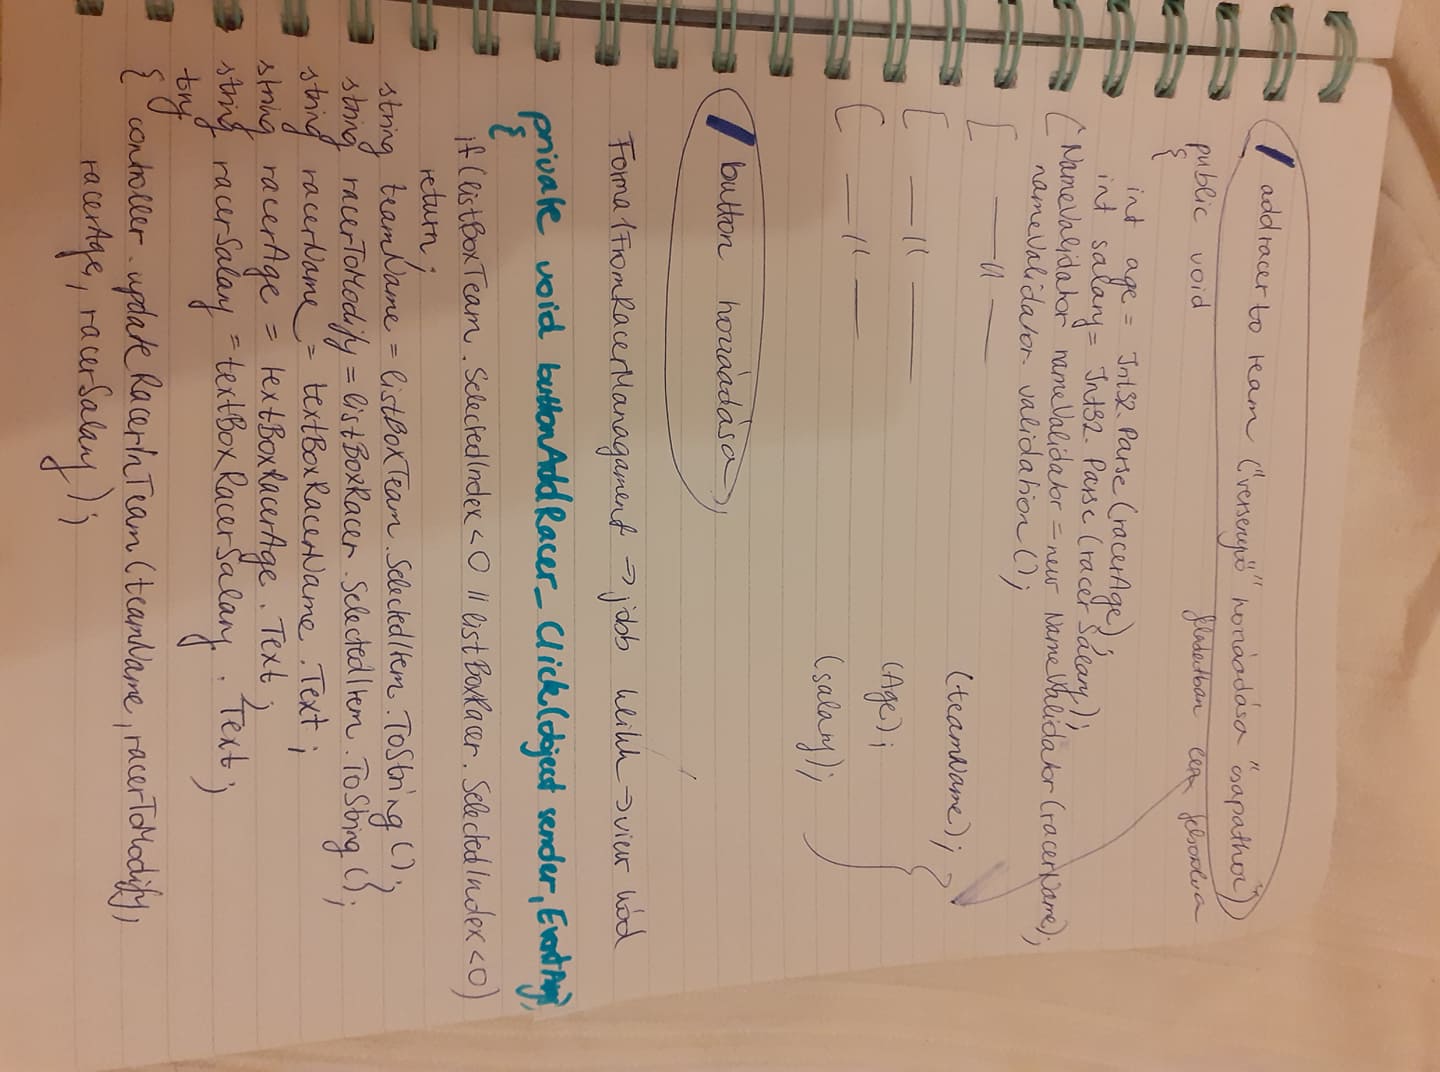 addracerto team ("versenyző" hozzáadása "csapathoz")
public void feladatban leíra felsorolva
{
int age = Int32.Parse(racerAge);
int salary = Int32.Parse(racerSalary);
(NameValidator nameValidator = new NameValidator(racerName);
nameValidator.validation();
[ —"— (teamName);
[ —"— (Age);
[ —"— (salary);
button hozzáadása
Forma1FromRacerManagament → jobb klikk → view kód
private void buttonAddRacer_Click(object sender, EventArgs)
{
if (listBoxTeam.SelectedIndex < 0 || listBoxRacer.SelectedIndex < 0)
return;
string teamName = listBoxTeam.SelectedItem.ToString();
string racerToModify = listBoxRacer.SelectedItem.ToString();
string racerName = textBoxRacerName.Text;
string racerAge = textBoxRacerAge.Text;
string racerSalary = textBoxRacerSalary.Text;
try
{ controller.updateRacerInTeam(teamName, racerToModify,
racerAge, racerSalary);